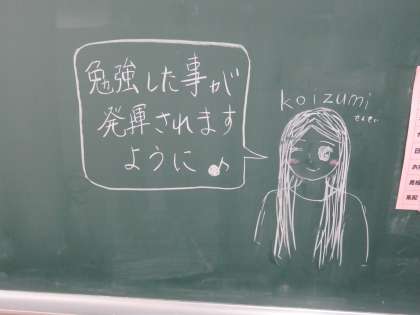 勉強した事が
発揮されます
ように♪
koizumi
せんせい